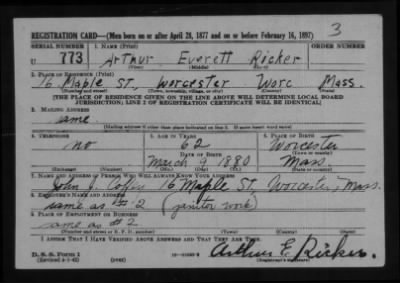 3
REGISTRATION CARD—(Men born on or after April 28, 1877 and on or before February 16, 1897)
SERIAL NUMBER 1. NAME (Print) ORDER NUMBER
U 773 Arthur Everett Ricker
(First) (Middle) (Last)
2. PLACE OF RESIDENCE (Print)
16 Maple St, Worcester Worc Mass.
(Number and street) (Town, township, village, or city) (County) (State)
[THE PLACE OF RESIDENCE GIVEN ON THE LINE ABOVE WILL DETERMINE LOCAL BOARD
JURISDICTION; LINE 2 OF REGISTRATION CERTIFICATE WILL BE IDENTICAL]
3. MAILING ADDRESS
same
[Mailing address if other than place indicated on line 2. If same insert word same]
4. TELEPHONE 5. AGE IN YEARS 6. PLACE OF BIRTH
no 62 Worcester
DATE OF BIRTH (Town or county)
March 9 1880 Mass.
(Mo.) (Day) (Yr.) (State or country)
7. NAME AND ADDRESS OF PERSON WHO WILL ALWAYS KNOW YOUR ADDRESS
John J. 16 Maple St, Worcester, Mass.
8. EMPLOYER'S NAME AND ADDRESS
same as #2 (janitor work)
9. PLACE OF EMPLOYMENT OR BUSINESS
same as #2
(Number and street or R. F. D. number) (Town) (County) (State)
I AFFIRM THAT I HAVE VERIFIED ABOVE ANSWERS AND THAT THEY ARE TRUE.
D. S. S. Form 1
(Revised 4-1-42) (over) Arthur E. Ricker.
(Registrant's signature)